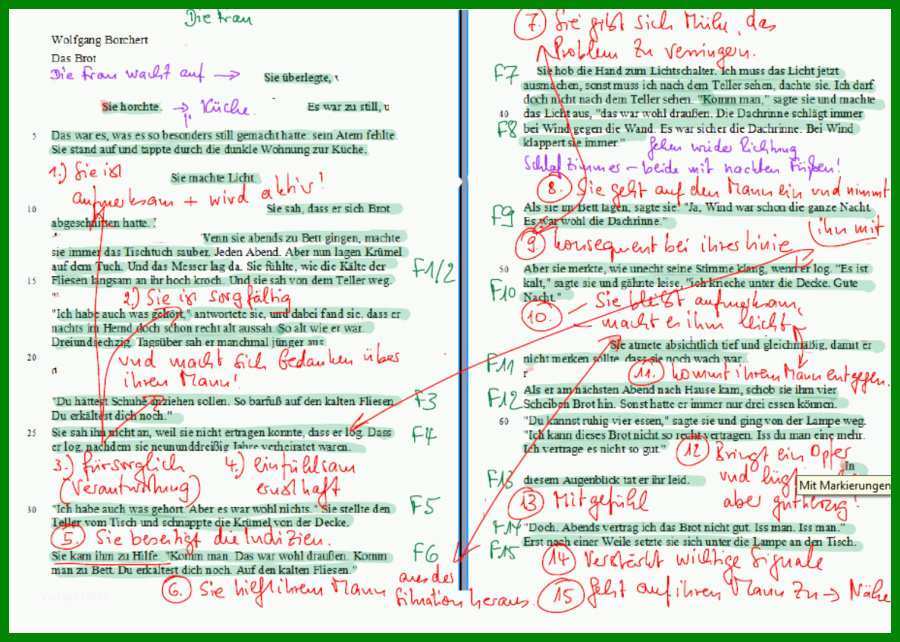 Die Frau
Wolfgang Borchert
Das Brot
Die Frau wacht auf → Sie überlegte,
Sie horchte. → Küche. Es war zu still, u
5 Das war es, was es so besonders still gemacht hatte: sein Atem fehlte.
Sie stand auf und tappte durch die dunkle Wohnung zur Küche.
1.) Sie ist
Sie machte Licht.
aufmerksam + wird aktiv!
10 Sie sah, dass er sich Brot
abgeschnitten hatte.
Wenn sie abends zu Bett gingen, machte
sie immer das Tischtuch sauber. Jeden Abend. Aber nun lagen Krümel
auf dem Tuch. Und das Messer lag da. Sie fühlte, wie die Kälte der
F1/2
15 Fliesen langsam an ihr hoch kroch. Und sie sah von dem Teller weg.
2) Sie ist sorgfältig
"Ich habe auch was gehört," antwortete sie, und dabei fand sie, dass er
nachts im Hemd doch schon recht alt aussah. So alt wie er war.
Dreiundsechzig. Tagsüber sah er manchmal jünger aus
20 und macht sich Gedanken über
ihren Mann!
"Du hättest Schuhe anziehen sollen. So barfuß auf den kalten Fliesen.
F3
Du erkältest dich noch."
25 Sie sah ihn nicht an, weil sie nicht ertragen konnte, dass er log. Dass
F4
er log, nachdem sie neununddreißig Jahre verheiratet waren.
3.) fürsorglich 4.) einfühlsam
(Verantwortung) ernsthaft
30 "Ich habe auch was gehört. Aber es war wohl nichts." Sie stellte den
F5
Teller vom Tisch und schnappte die Krümel von der Decke.
5. Sie beseitigt die Indizien.
Sie kam ihm zu Hilfe. "Komm man. Das war wohl draußen. Komm
F6
man zu Bett. Du erkältest dich noch. Auf den kalten Fliesen."
6. Sie hilft ihrem Mann aus der
Situation heraus.
7. Sie gibt sich Mühe, das
Problem zu verringern.
F7 Sie hob die Hand zum Lichtschalter. Ich muss das Licht jetzt
ausmachen, sonst muss ich nach dem Teller sehen, dachte sie. Ich darf
doch nicht nach dem Teller sehen. "Komm man," sagte sie und machte
40 das Licht aus, "das war wohl draußen. Die Dachrinne schlägt immer
F8 bei Wind gegen die Wand. Es war sicher die Dachrinne. Bei Wind
klappert sie immer." Gehen wieder Richtung
Schlafzimmer – beide mit nackten Füßen!
8. Sie geht auf den Mann ein und nimmt
ihn mit
F9 Als sie im Bett lagen, sagte sie: "Ja, Wind war schon die ganze Nacht.
Es war wohl die Dachrinne."
9. konsequent bei ihrer Linie
50 Aber sie merkte, wie unecht seine Stimme klang, wenn er log. "Es ist
F10 kalt," sagte sie und gähnte leise, "ich krieche unter die Decke. Gute
Nacht."
10. – Sie bleibt aufmerksam,
– macht es ihm leicht
Sie atmete absichtlich tief und gleichmäßig, damit er
F11 nicht merken sollte, dass sie noch wach war.
11. kommt ihrem Mann entgegen.
F12 Als er am nächsten Abend nach Hause kam, schob sie ihm vier
Scheiben Brot hin. Sonst hatte er immer nur drei essen können.
60 "Du kannst ruhig vier essen," sagte sie und ging von der Lampe weg.
"Ich kann dieses Brot nicht so recht vertragen. Iss du man eine mehr.
Ich vertrage es nicht so gut."
12 Bringt ein Opfer
und lügt
aber gutherzig!
In
F13 diesem Augenblick tat er ihr leid.
Mit Markierungen
13 Mitgefühl
F14 "Doch. Abends vertrag ich das Brot nicht gut. Iss man. Iss man."
F15 Erst nach einer Weile setzte sie sich unter die Lampe an den Tisch.
14 Verstärkt wichtige Signale
15 Geht auf ihren Mann zu → Nähe